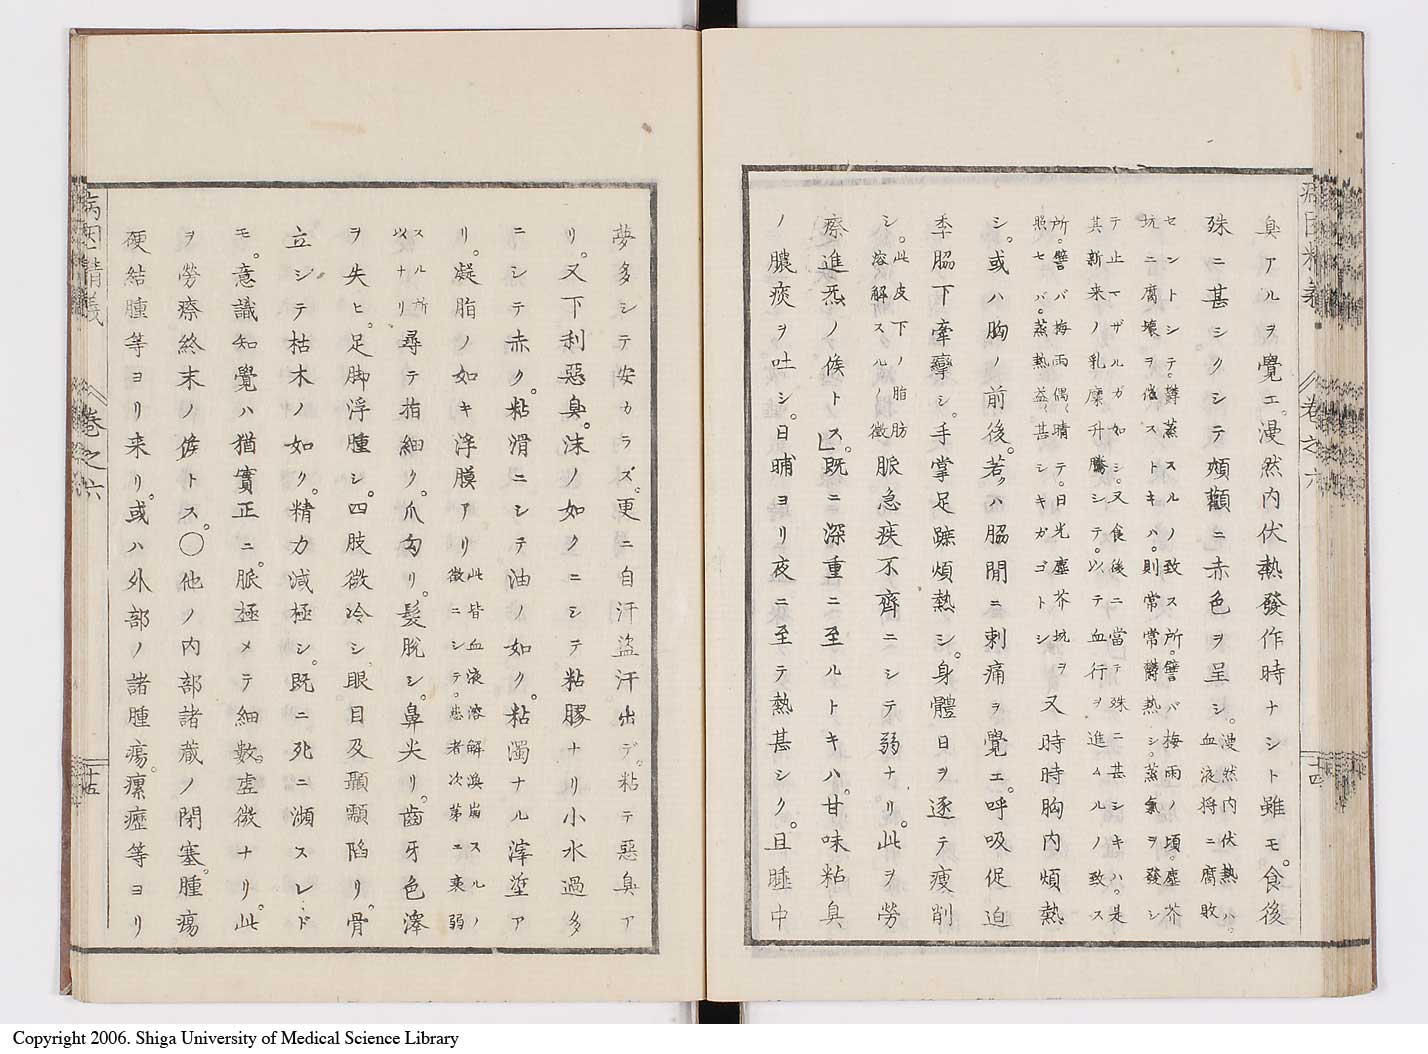 臭アルヲ覺エ。漫然内伏熱發作時ナシト雖モ。食後
殊ニ甚シクシテ頰顴ニ赤色ヲ呈シ。漫然内伏熱ハ。
血液將ニ腐敗
セントシテ。蘊蒸スルノ致ス所。譬バ梅雨ノ頃。塵芥
坑ニ腐壊ヲ催ストキハ。則常常欝熱シ。蒸氣ヲ發シ
テ止マザルガ如シ。又食後ニ當テ殊ニ甚シキハ。是
其新来ノ乳糜升騰シテ。以テ血行ヲ進ムルノ致ス
所。譬バ梅雨偶〻晴テ。日光塵芥坑ヲ
照セバ。蒸熱益〻甚シキガゴトシ
又時時胸内煩熱
シ。或ハ胸ノ前後。若ハ脇間ニ刺痛ヲ覺エ。呼吸促迫
季脇下牽攣シ。手掌足蹠煩熱シ。身體日ヲ逐テ瘦削
シ。此皮下ノ脂肪
溶解スルノ徴
脈急疾不齊ニシテ弱ナリ。此ヲ勞
瘵進炁ノ候トス」。既ニ深重ニ至ルトキハ。甘味粘臭
ノ膿痰ヲ吐シ。日晡ヨリ夜ニ至テ熱甚シク。且睡中
病因精義
卷之六
十四
夢多シテ安カラズ。更ニ自汗盗汗出デ。粘テ惡臭ア
リ。又下利惡臭。沫ノ如クニシテ粘膠ナリ小水過多
ニシテ赤ク。粘滑ニシテ油ノ如ク。粘濁ナル滓埿ア
リ。凝脂ノ如キ浮膜アリ
此皆血液溶解渙崩スルノ
徴ニシテ。患者次第ニ衰弱
スル所
以ナリ
尋テ指細ク。爪勾リ。髮脫シ。鼻尖リ。齒牙色澤
ヲ失ヒ。足脚浮腫シ。四肢微冷シ、眼目及顳顬陷リ。骨
立シテ枯木ノ如ク。精力減極シ。既ニ死ニ瀕スレド
モ。意識知覺ハ猶實正ニ。脈極メテ細數。虚微ナリ。此
ヲ勞瘵終末ノ候トス。〇他ノ内部諸藏ノ閉塞。腫瘍
硬結腫等ヨリ来リ。或ハ外部ノ諸腫瘍。瘰癧等ヨリ
病因精義
卷之六
十五
Copyright 2006. Shiga University of Medical Science Library